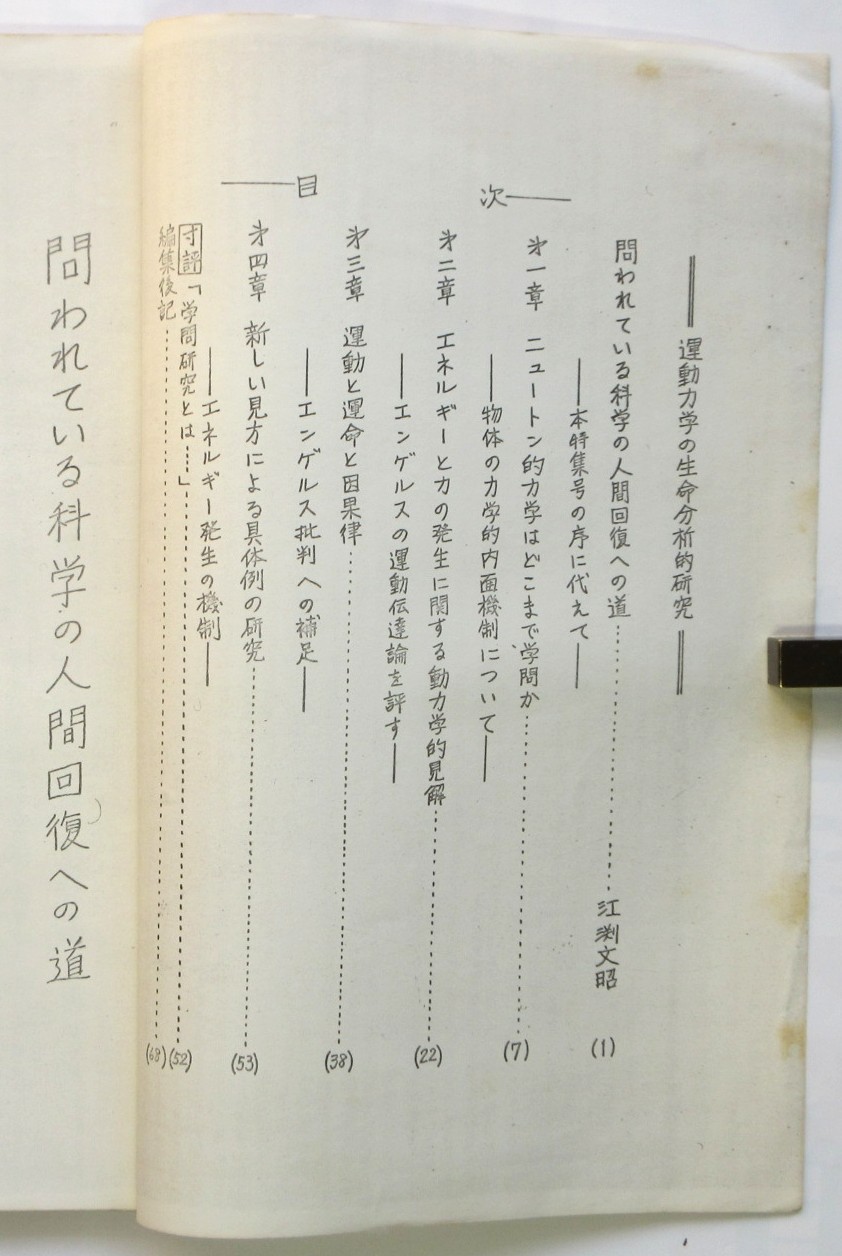 ══運動力学の生命分析的研究══
次──
問われている科学の人間回復への道……江渕文昭 (1)
──本特集号の序に代えて──
第一章 ニュートン的力学はどこまで学問か……(7)
──物体の力学的内面機制について──
第二章 エネルギーと力の発生に関する動力学的見解……(22)
──エンゲルスの運動伝達論を評す──
第三章 運動と運命と因果律……(38)
──エンゲルス批判への補足──
──目
第四章 新しい見方による具体例の研究……(53)
──エネルギー発生の機制──
寸評「学問研究とは……」……(52)
編集後記……(68)
問われている科学の人間回復への道